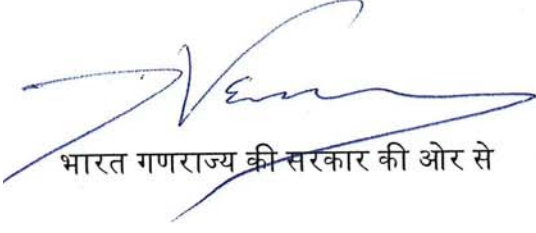 भारत गणराज्य की सरकार की ओर से